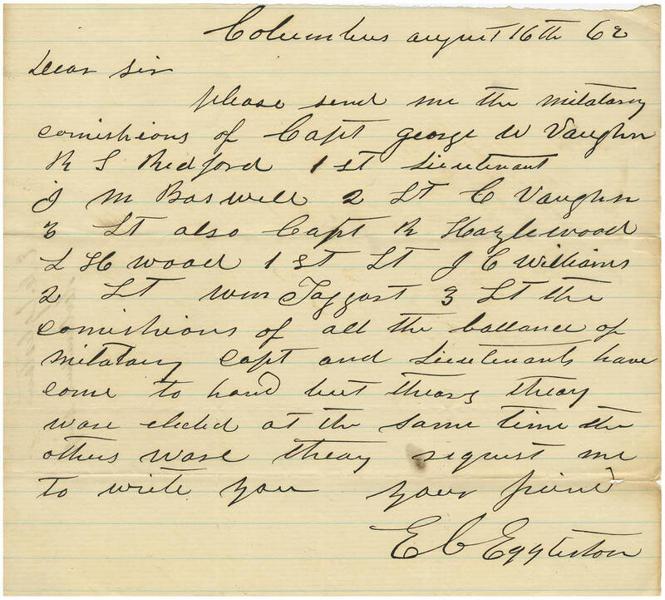 Columbus august 16th 62
Dear sir
please send me the militarry
comishions of Capt george W Vaughn
R S Redford 1 st Lieutenant
J M Boswell 2 Lt C Vaughn
3 Lt also Capt R Hazlewood
L H wood 1 st Lt J C Williams
2 Lt wm Taggart 3 Lt the
comishions of all the ballance of
militarry capt and Lieutenants have
come to hand but thears theay
ware elected at the same time the
others ware theay request me
to write you your friend
E C Eggleston